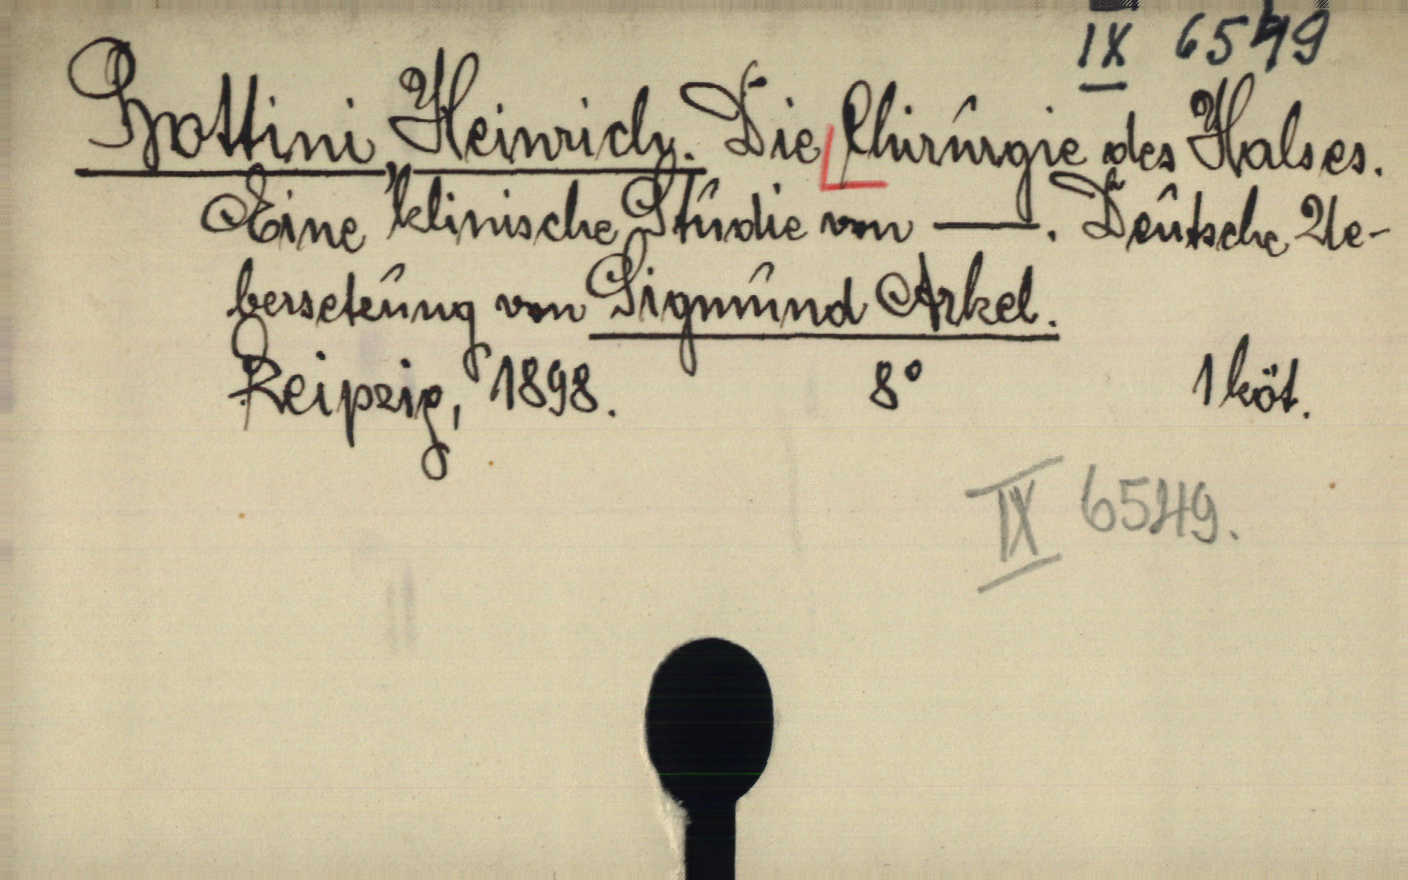 IX 6549
Bottini Heinrich. Die Chirurgie des Halses.
Eine klinische Studie von —. Deutsche Ue-
bersetzung von Sigmund Arkel.
Leipzig, 1898. 8° 1 köt.
IX 6549.